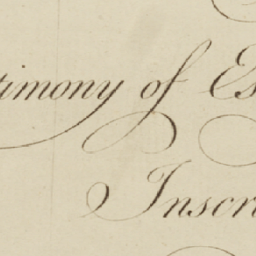 timony of Es
Inscri